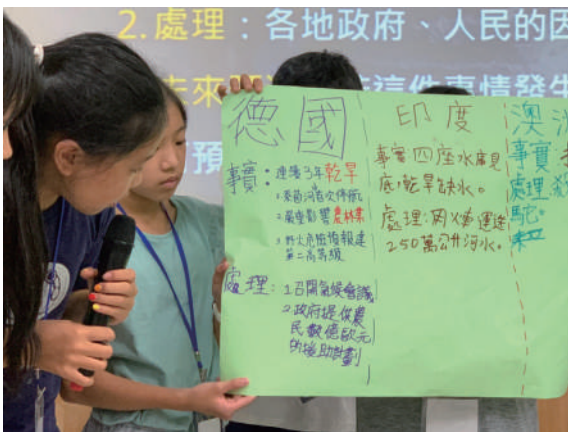 2.處理：各地政府、人民的因
未來
這件事情發生
預
德國
事實：連續3年乾旱
1.萊茵河首次停航
2.嚴重影響農林業
3.野火危險情報達
第二高等級
處理：1.召開氣候會議
2.政府提供農
民數億歐元
的援助計劃
印度
事實:四座水庫見
底,乾旱缺水。
處理:用火車運送
250萬公升河水。
澳洲
事實
處理 殺
駱駝